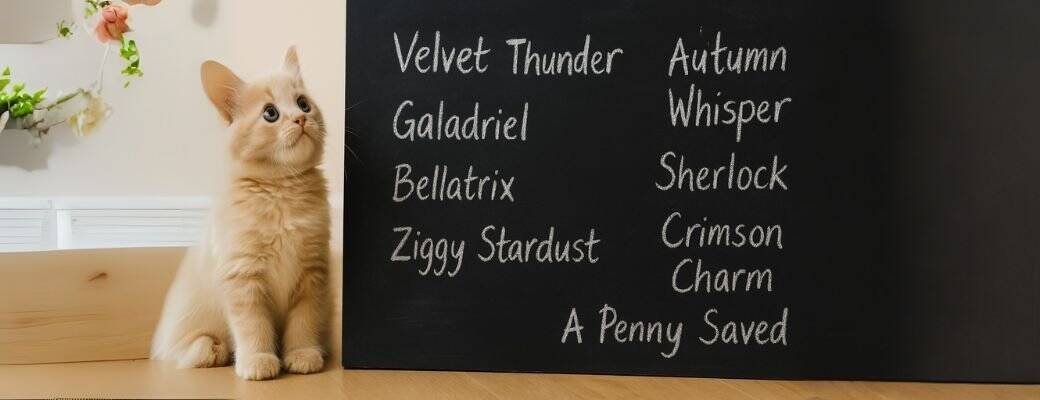 Velvet Thunder
Galadriel
Bellatrix
Ziggy Stardust
Autumn
Whisper
Sherlock
Crimson
Charm
A Penny Saved